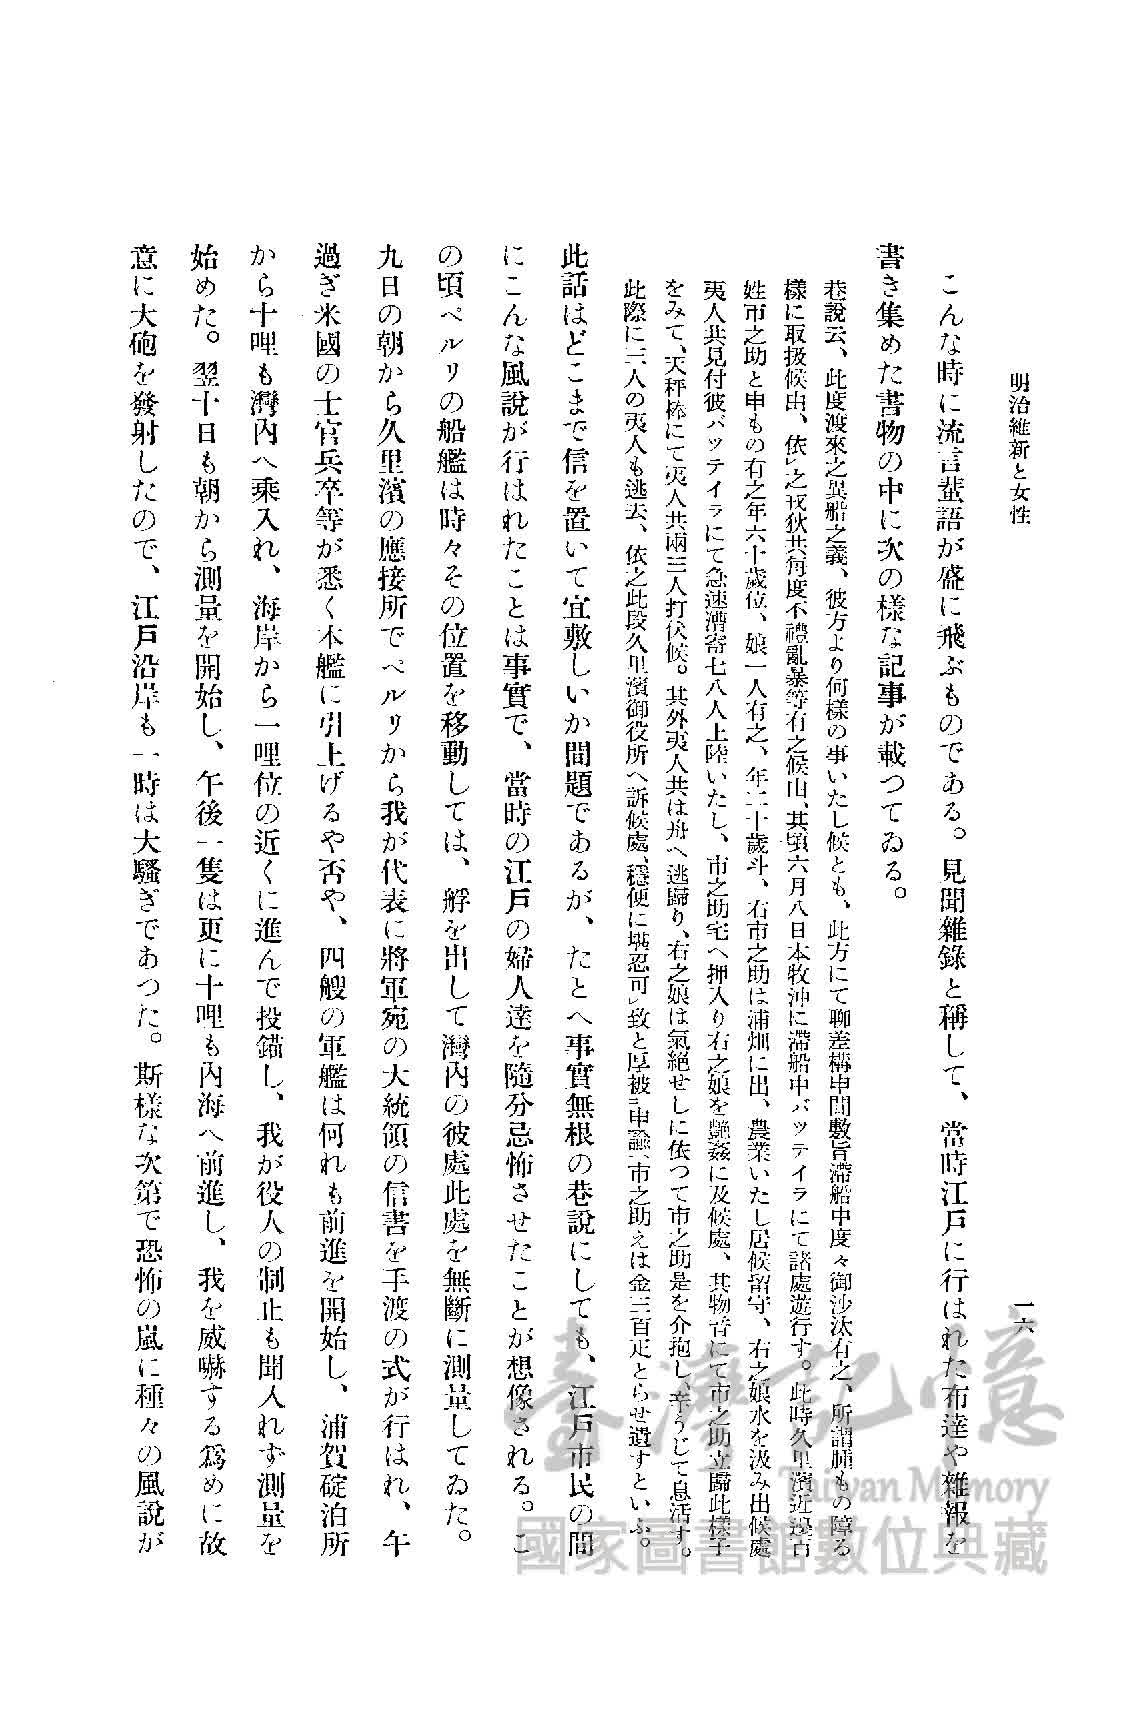 明治維新と女性
一六
こんな時に流言蜚語が盛に飛ぶものである。見聞雜錄と稱して、當時江戸に行はれた布達や雜報を
書き集めた書物の中に次の樣な記事が載つてゐる。
巷說云、此度渡來之異船之義、彼方より何樣の事いたし候とも、此方にて聊差構申間敷旨滯船中度々御沙汰有之、所謂腫もの障る
樣に取扱候由、依之戎狄共每度不禮亂暴等有之候由、其頃六月八日本牧沖に滯船中バッテイラにて諸處遊行す。此時久里濱近邊百
姓市之助と申もの有之年六十歲位、娘一人有之、年二十歲斗、右市之助は浦畑に出、農業いたし居候留守、右之娘水を汲み出候處
夷人共見付彼バッテイラにて急速漕寄七八人上陸いたし、市之助宅へ押入り右之娘を艶姦に及候處、其物音にて市之助立歸此樣子
をみて、天秤棒にて夷人共兩三人打伏候。其外夷人共は舟へ逃歸り、右之娘は氣絕せしに依つて市之助是を介抱し、辛うじて息活す。
此際に三人の夷人も逃去、依之此段久里濱御役所へ訴候處、穩便に堪忍可致と厚被申諭、市之助えは金三百疋とらせ遺すといふ。
此話はどこまで信を置いて宜敷しいか問題であるが、たとへ事實無根の巷說にしても、江戸市民の間
にこんな風說が行はれたことは事實で、當時の江戸の婦人達を隨分忌怖させたことが想像される。こ
の頃ペルリの船艦は時々その位置を移動しては、艀を出して灣內の彼處此處を無斷に測量してゐた。
九日の朝から久里濱の應接所でペルリから我が代表に將軍宛の大統領の信書を手渡の式が行はれ、午
過ぎ米國の士官兵卒等が悉く本艦に引上げるや否や、四艘の軍艦は何れも前進を開始し、浦賀碇泊所
から十哩も灣內へ乘入れ、海岸から一哩位の近くに進んで投錨し、我が役人の制止も聞入れず測量を
始めた。翌十日も朝から測量を開始し、午後一隻は更に十哩も內海へ前進し、我を威嚇する爲めに故
意に大砲を發射したので、江戸沿岸も一時は大騷ぎであつた。斯樣な次第で恐怖の嵐に種々の風說が
臺灣記憶
Taiwan Memory
國家圖書館數位典藏